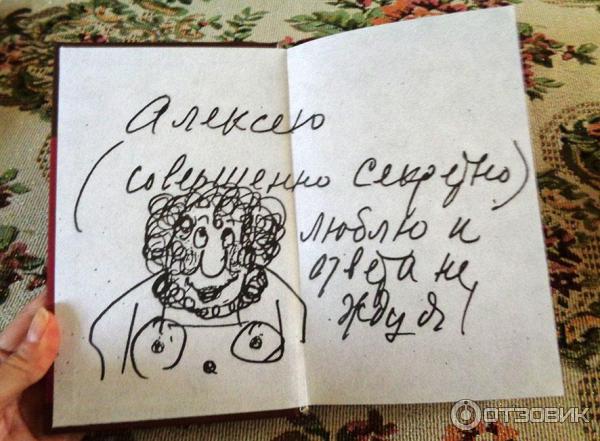 Алексею
(совершенно секретно)
люблю и
ответа не
жду я!
ОТЗОВИК